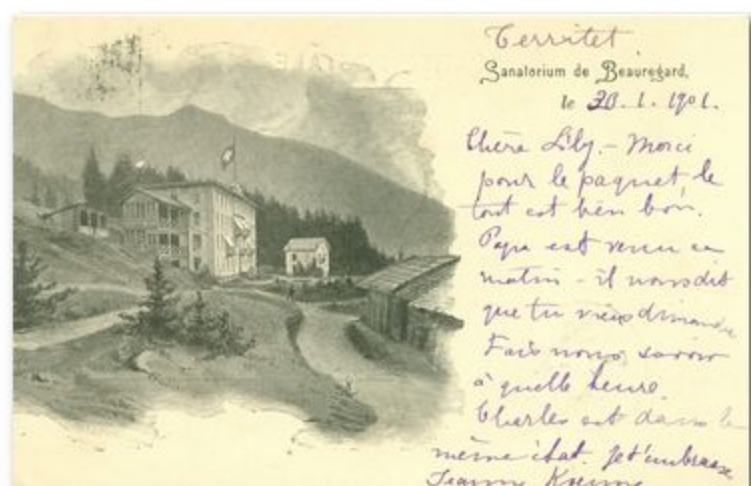 Territet
Sanatorium de Beauregard,
le 30.1.1901.
Chère Lily. - Merci
pour le paquet, le
tout est bien bon.
Papa est venu ce
matin - il nous dit
que tu viens dimanche
Fais nous savoir
à quelle heure.
Charles est dans le
même état. Je t'embrasse
Jeanne